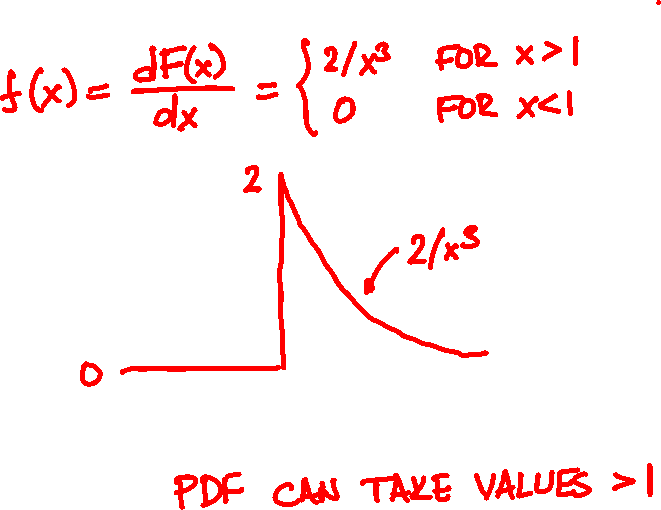 f(x) = dF(x)/dx = { 2/x³ FOR x>1
0 FOR x<1
2
2/x³
0
PDF CAN TAKE VALUES >1